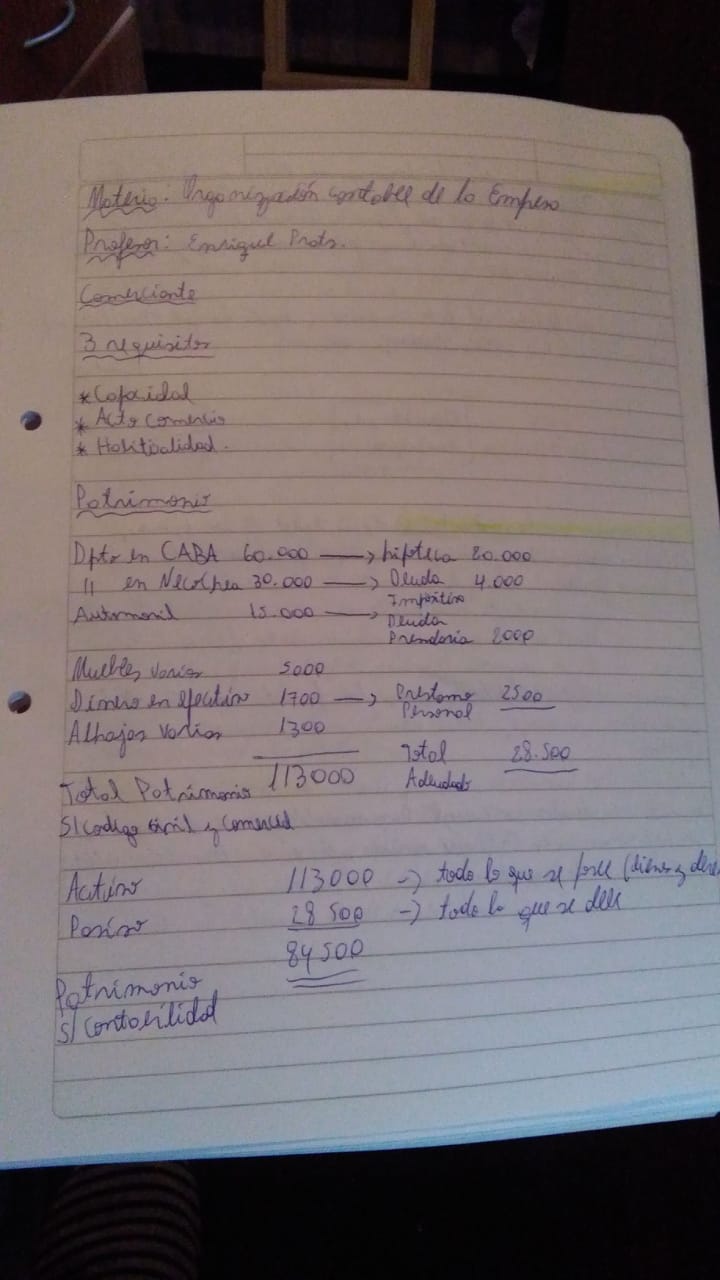 Materia: Organización contable de la Empresa
Profesor: Enrique Prats.
Comerciante
3 requisitos
* Capacidad
* Acto Comercio
* Habitualidad.
Patrimonio
Dpto en CABA 60.000 → hipoteca 20.000
" en Necochea 30.000 → Deuda 4.000
Impositiva
Automovil 15.000 → Deuda
Prendaria 2000
Muebles varios 5000
Dinero en efectivo 1700 → Prestamo 2500
Personal
Alhajas varias 1300
Total 28.500
Total Patrimonio 113000 Adeudado
S/ Codigo Civil y Comercial
Activo 113000 → todo lo que se posee (bienes y
Pasivo 28 500 → todo lo que se debe
84500
Patrimonio
S/ Contabilidad